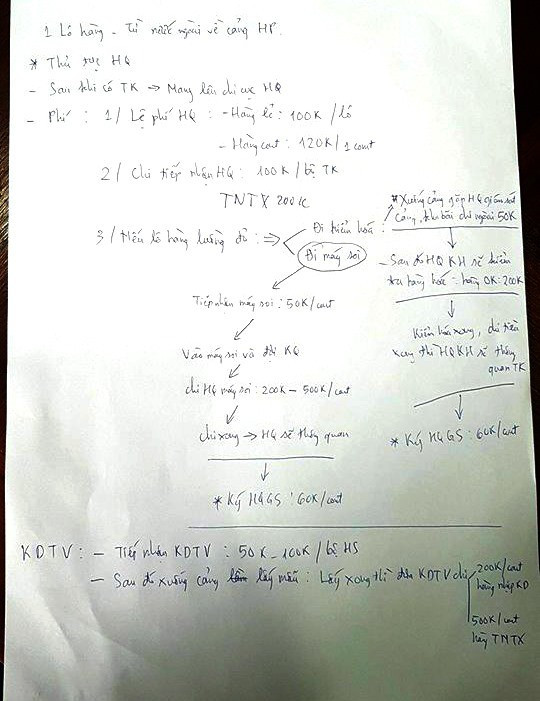 1 Lô hàng - Từ nước ngoài về cảng HP.
* Thủ tục HQ
- Sau khi có TK → Mang lên chi cục HQ
- Phí : 1/ Lệ phí HQ : - Hàng lẻ : 100K /lô
- Hàng cont : 120K / 1 cont
2/ Chi tiếp nhận HQ : 100K / bộ TK
TNTX 200K
3/ Nếu lô hàng luồng đỏ : ⇒
Đi kiểm hoá :
Đi máy soi
Tiếp nhận máy soi : 50K/cont
Vào máy soi và đợi KQ
chi HQ máy soi : 200K - 500K/cont
chi xong → HQ sẽ thông quan
* Ký HQGS : 60K/cont
* Xuống cảng gặp HQ giám sát
cảng, kho bãi chi ngoài 50K
- Sau đó HQ KH sẽ kiểm
tra hàng hoá : hàng OK : 200K
Kiểm hoá xong, chi tiền
xong thì HQKH sẽ thông
quan TK
* Ký HQGS : 60K/cont
KDTV : - Tiếp nhận KDTV : 50K - 100K / bộ HS
- Sau đó xuống cảng lấy mẫu : Lấy xong thì đưa KDTV chi
200K/cont
hàng nhập KD
500K/cont
hàng TNTX